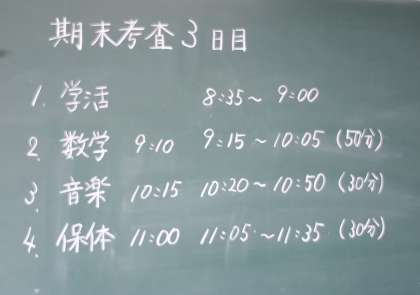 期末考査3日目
1. 学活 8:35~ 9:00
2. 数学 9:10 9:15~10:05 (50分)
3. 音楽 10:15 10:20~10:50 (30分)
4. 保体 11:00 11:05~11:35 (30分)